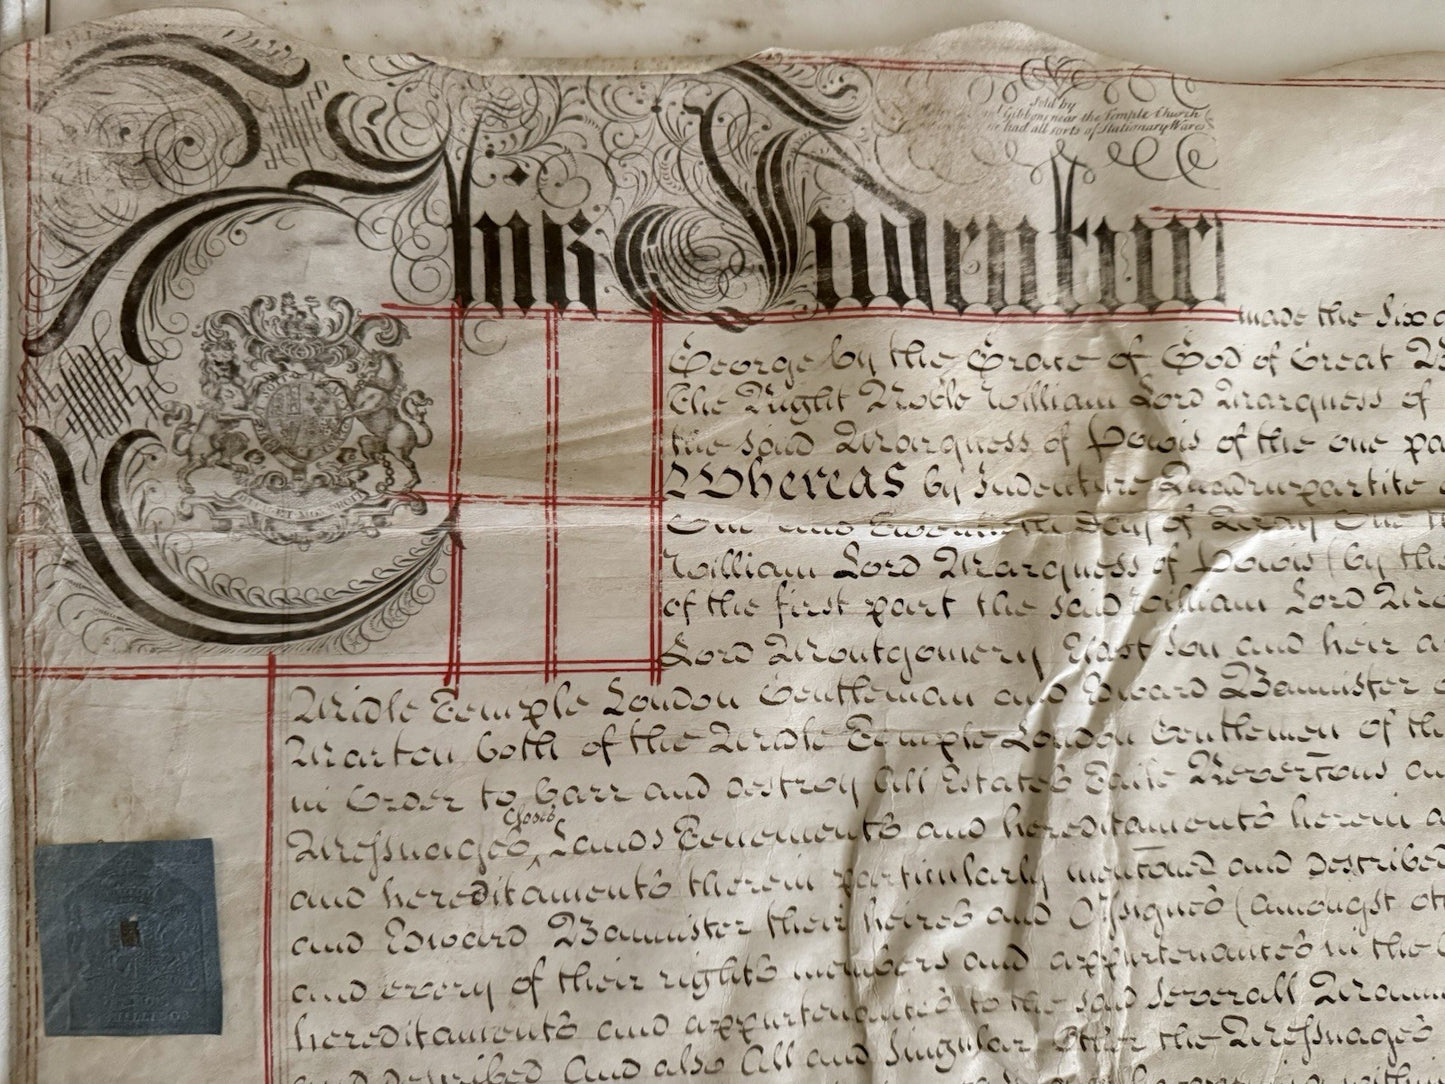 Sold by
Gibbons near the Temple Church
had all sorts of Stationary Wares
This Indentur
made the Six
George by the Grace of God of Great
The Right Noble William Lord Marquess of
the said Marquess of Powis of the one pa
Whereas by Indenture Quadrupartite
One and Twentieth Day of May One th
William Lord Marquess of Powis (by the
of the first part the said William Lord Mar
Lord Montgomery Eldest Son and heir a
Midle Temple London Gentleman and Edward Bannister
Marten both of the Midle Temple London Gentlemen of th
in Order to barr and destroy All Estates Taile Revertons an
Closes
Messuages ‸ Lands Tenements and hereditaments herein a
and hereditaments therein particularly mentoned and described
and Edward Bannister their heires and Assignes (amongst ot
and every of their rights members and appurtenances in the
hereditaments and appurtenances to the said severall Mann
and described And also All and Singular Other the Messuages